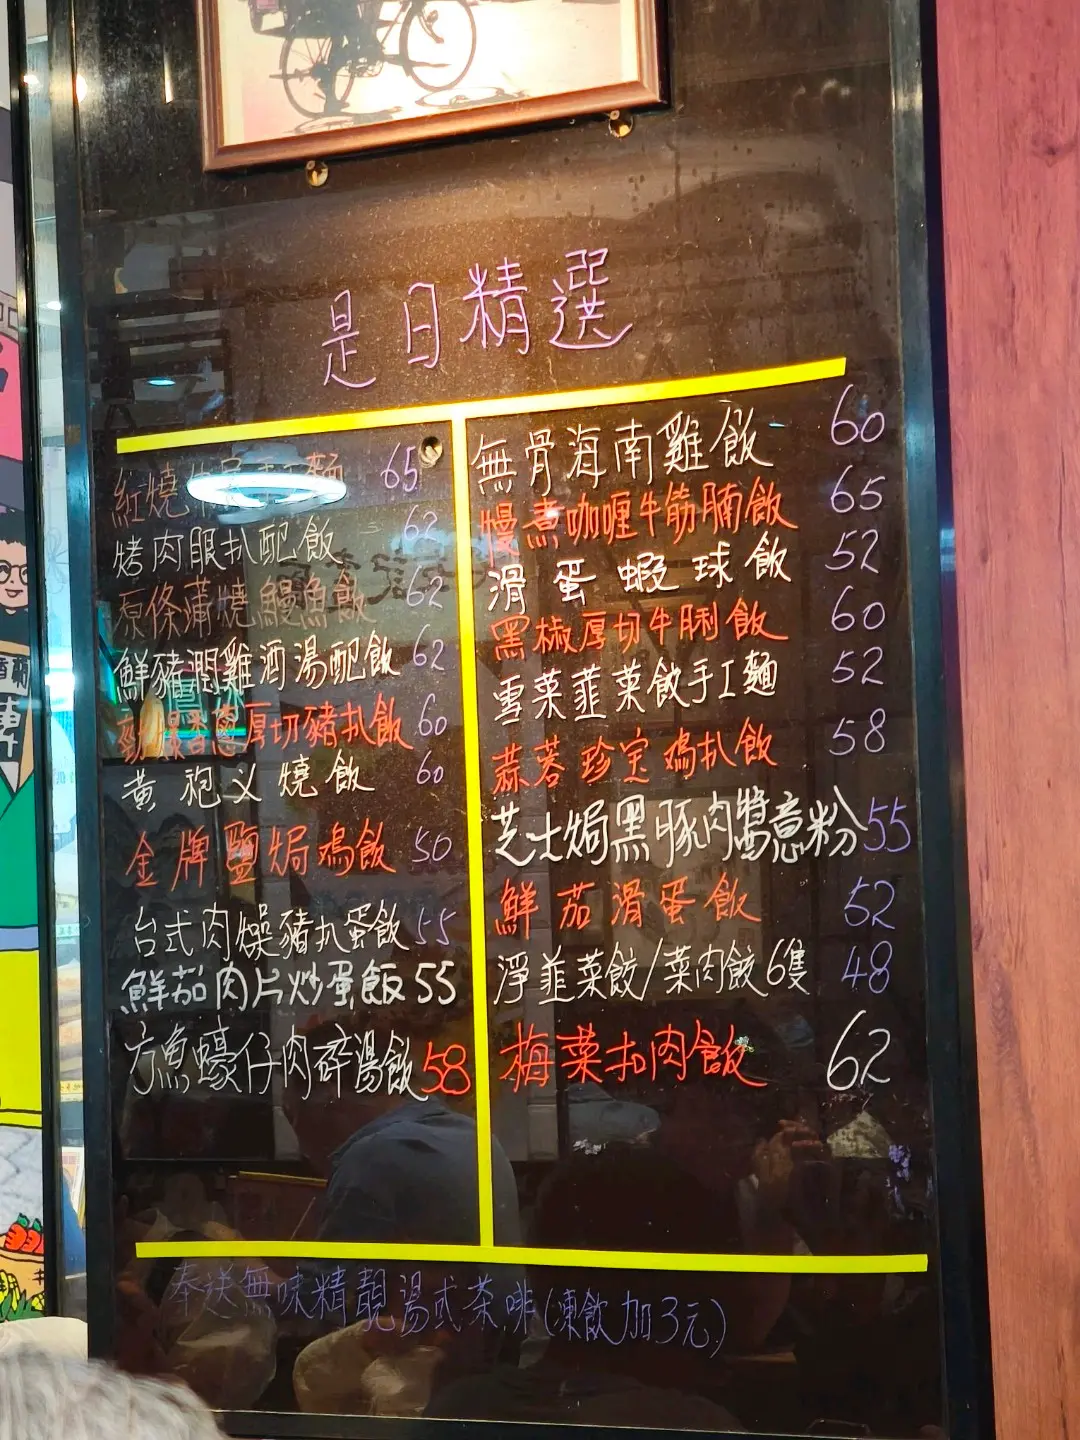 是日精選
紅燒牛 手工麵 65
烤肉眼扒配飯 62
原條蒲燒鰻魚飯 62
鮮豬潤雞酒湯配飯 62
勁爆香蔥厚切豬扒飯 60
黄袍义燒飯 60
金牌鹽焗鳮飯 50
台式肉燥豬扒蛋飯 55
鮮茄肉片炒蛋飯 55
方魚蠔仔肉碎湯飯 58
無骨海南雞飯 60
慢煮咖喱牛筋腩飯 65
滑蛋蝦球飯 52
黑椒厚切牛脷飯 60
雪菜韮菜餃手工麵 52
蒜蓉珍宝鳮扒飯 58
芝士焗黑豚肉醬意粉 55
鮮茄滑蛋飯 52
淨韮菜餃/菜肉餃6隻 48
梅菜扣肉飯 62
奉送無味精靚湯或茶啡(凍飲加3元)